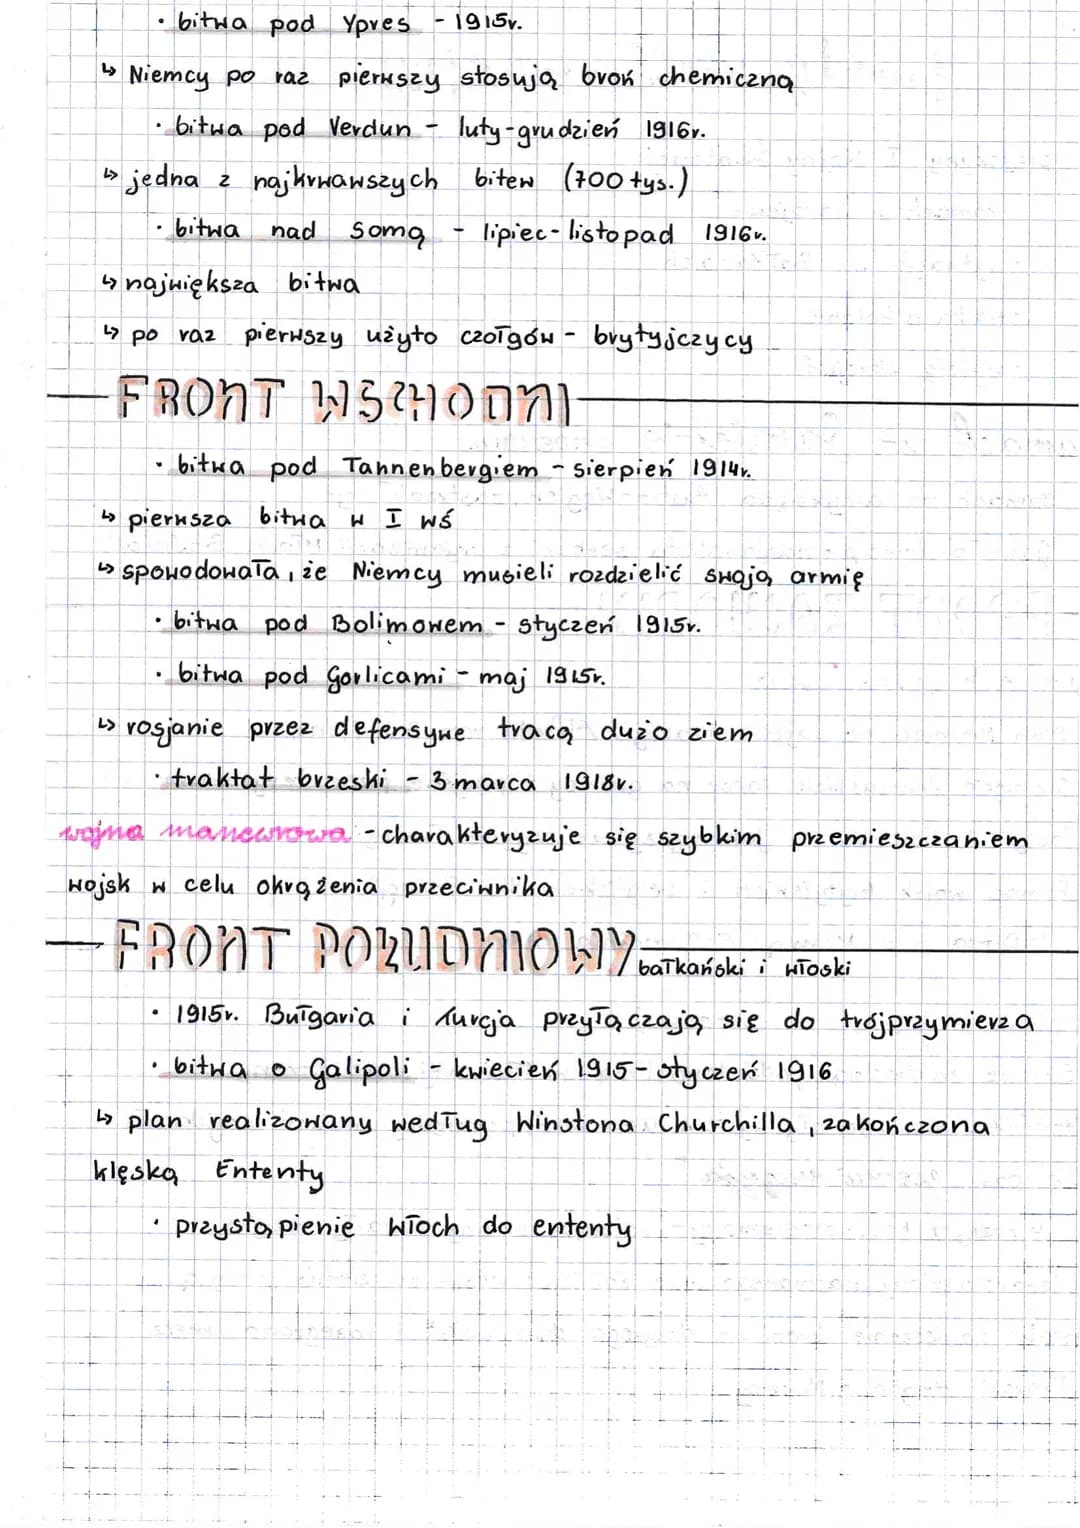 • bitwa pod Ypres - 1915r.
↳ Niemcy po raz pierwszy stosują broń chemiczną
• bitwa pod Verdun - luty-grudzień 1916r.
↳ jedna z najkrwawszych bitew (700 tys.)
• bitwa nad Somą - lipiec-listopad 1916r.
↳ największa bitwa
↳ po raz pierwszy użyto czołgów - brytyjczycy
FRONT WSCHODNI
• bitwa pod Tannenbergiem - sierpień 1914r.
↳ pierwsza bitwa w I wś
↳ spowodowała, że Niemcy musieli rozdzielić swoją armię
• bitwa pod Bolimowem - styczeń 1915r.
• bitwa pod Gorlicami - maj 1915r.
↳ rosjanie przez defensywe tracą dużo ziem
• traktat brzeski - 3 marca 1918r.
wojna manewrowa - charakteryzuje się szybkim przemieszczaniem
wojsk w celu okrążenia przeciwnika
FRONT POŁUDNIOWY bałkański i włoski
• 1915r. Bułgaria i Turcja przyłączają się do trójprzymierza
• bitwa o Galipoli - kwiecień 1915 - styczeń 1916
↳ plan realizowany według Winstona Churchilla, zakończona
klęską Ententy
• przystąpienie Włoch do ententy